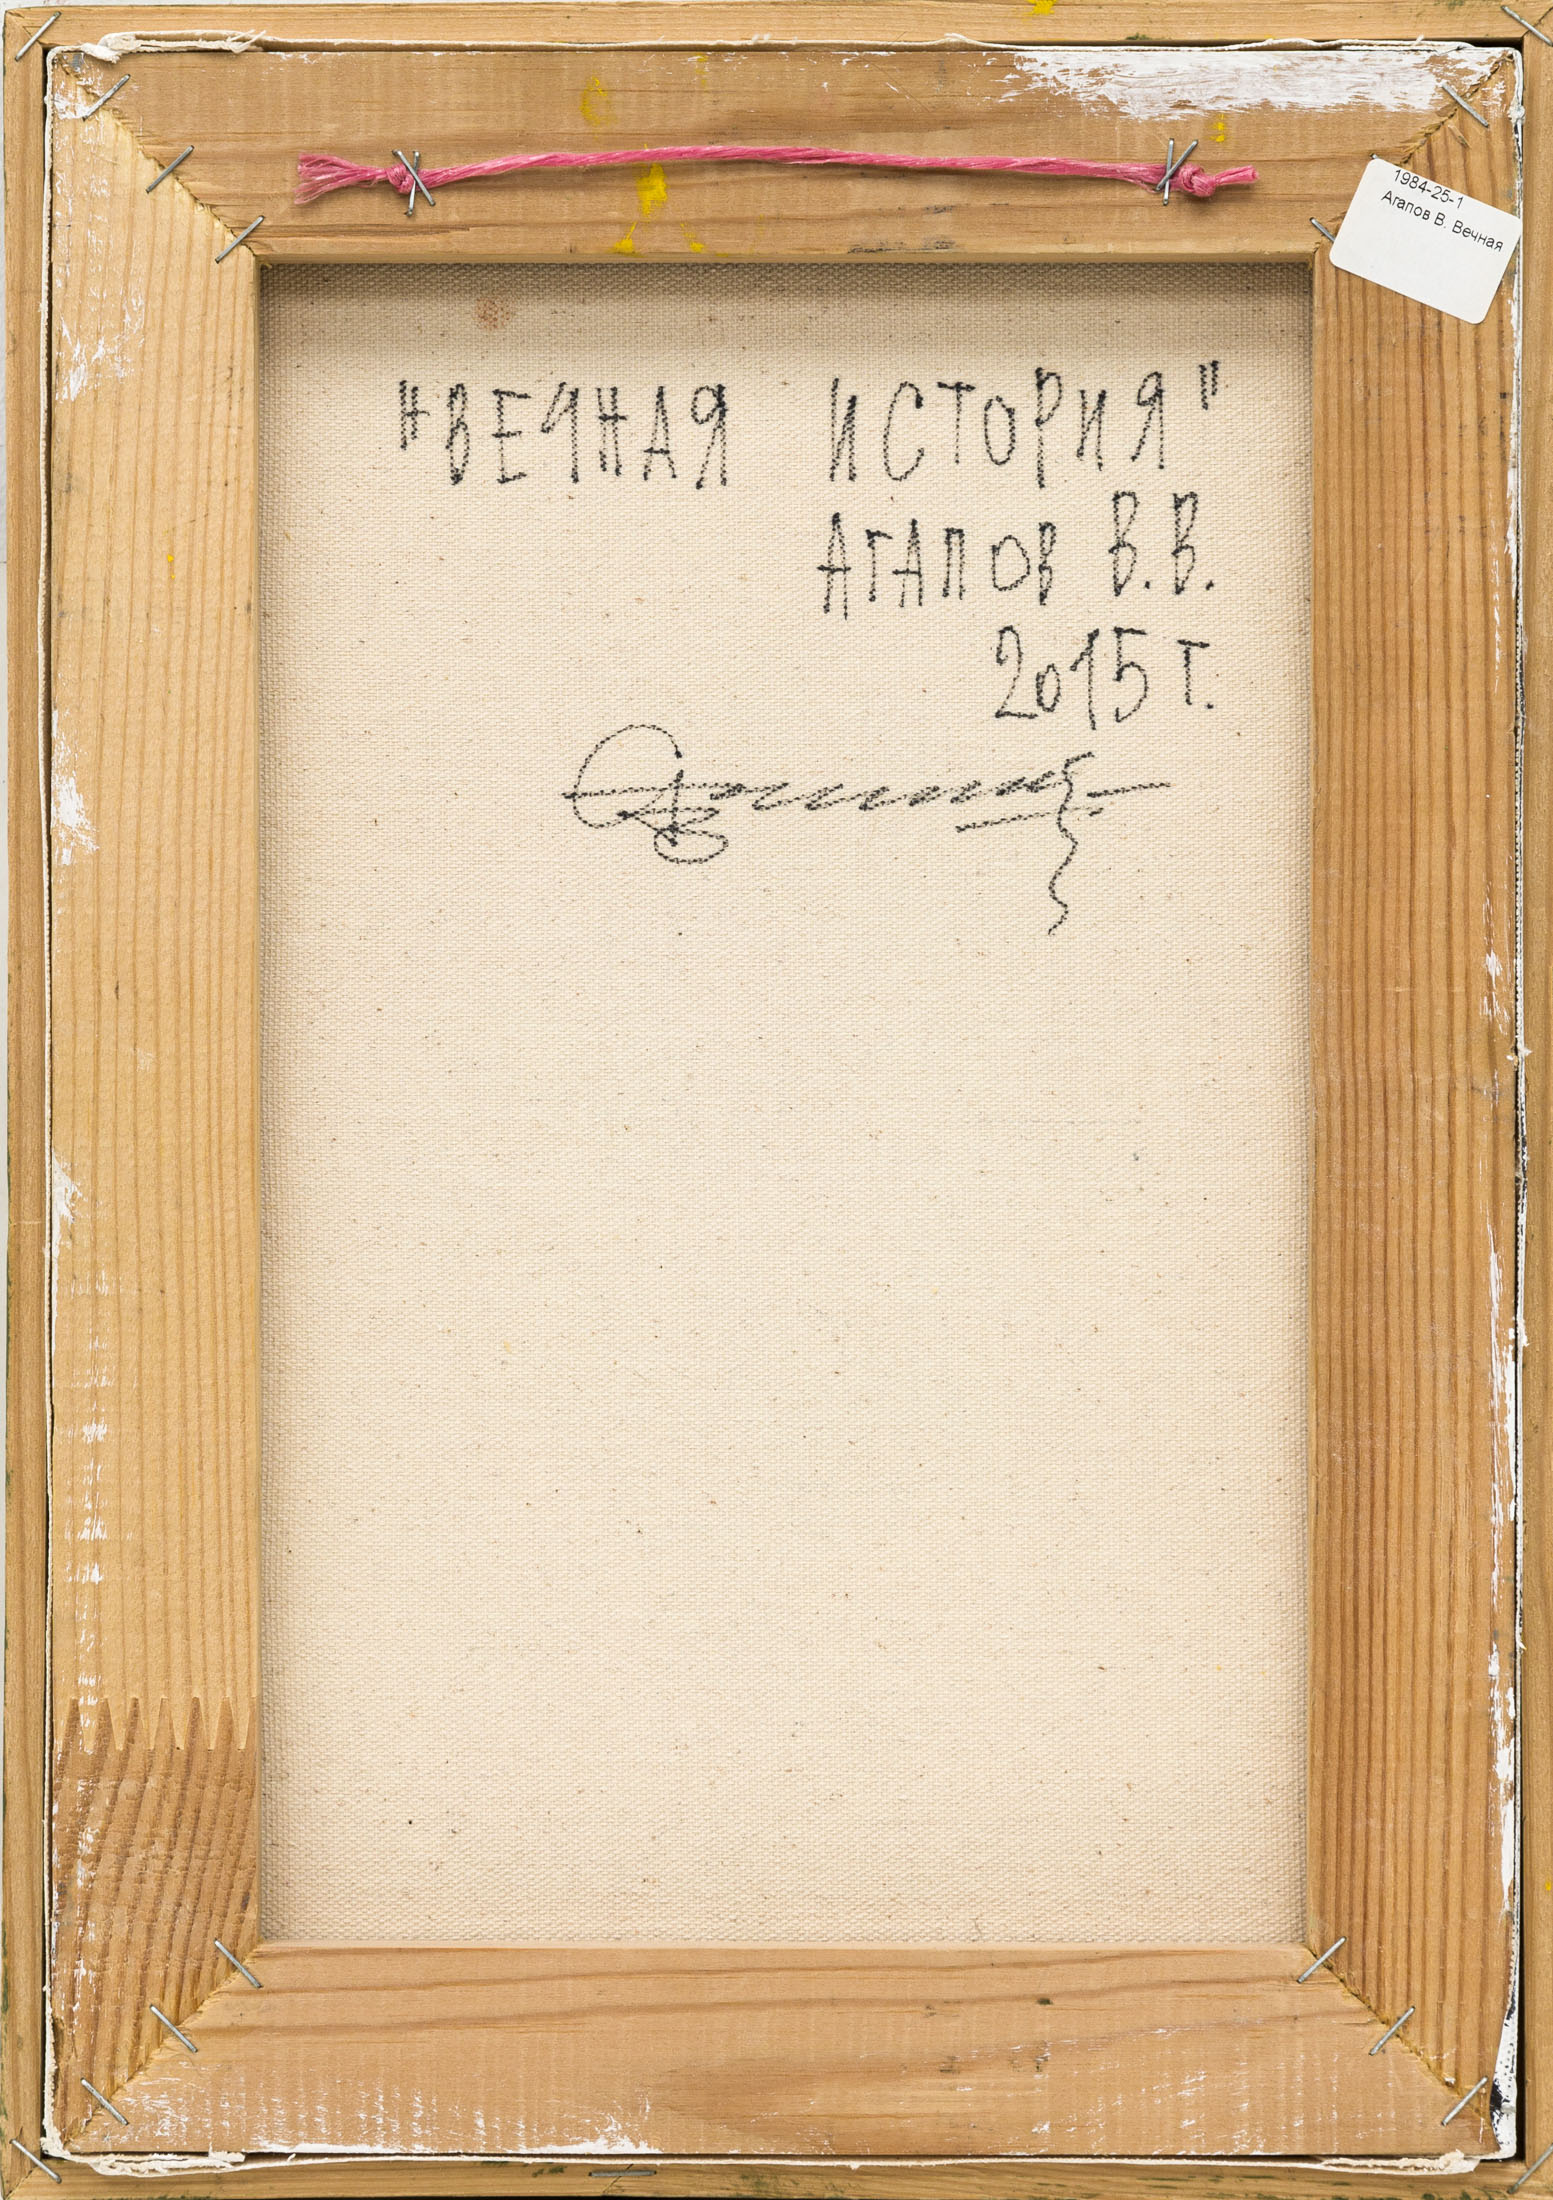 1984-25-1
Агапов В. Вечная
"ВЕЧНАЯ ИСТОРИЯ"
АГАПОВ В.В.
2015 г.